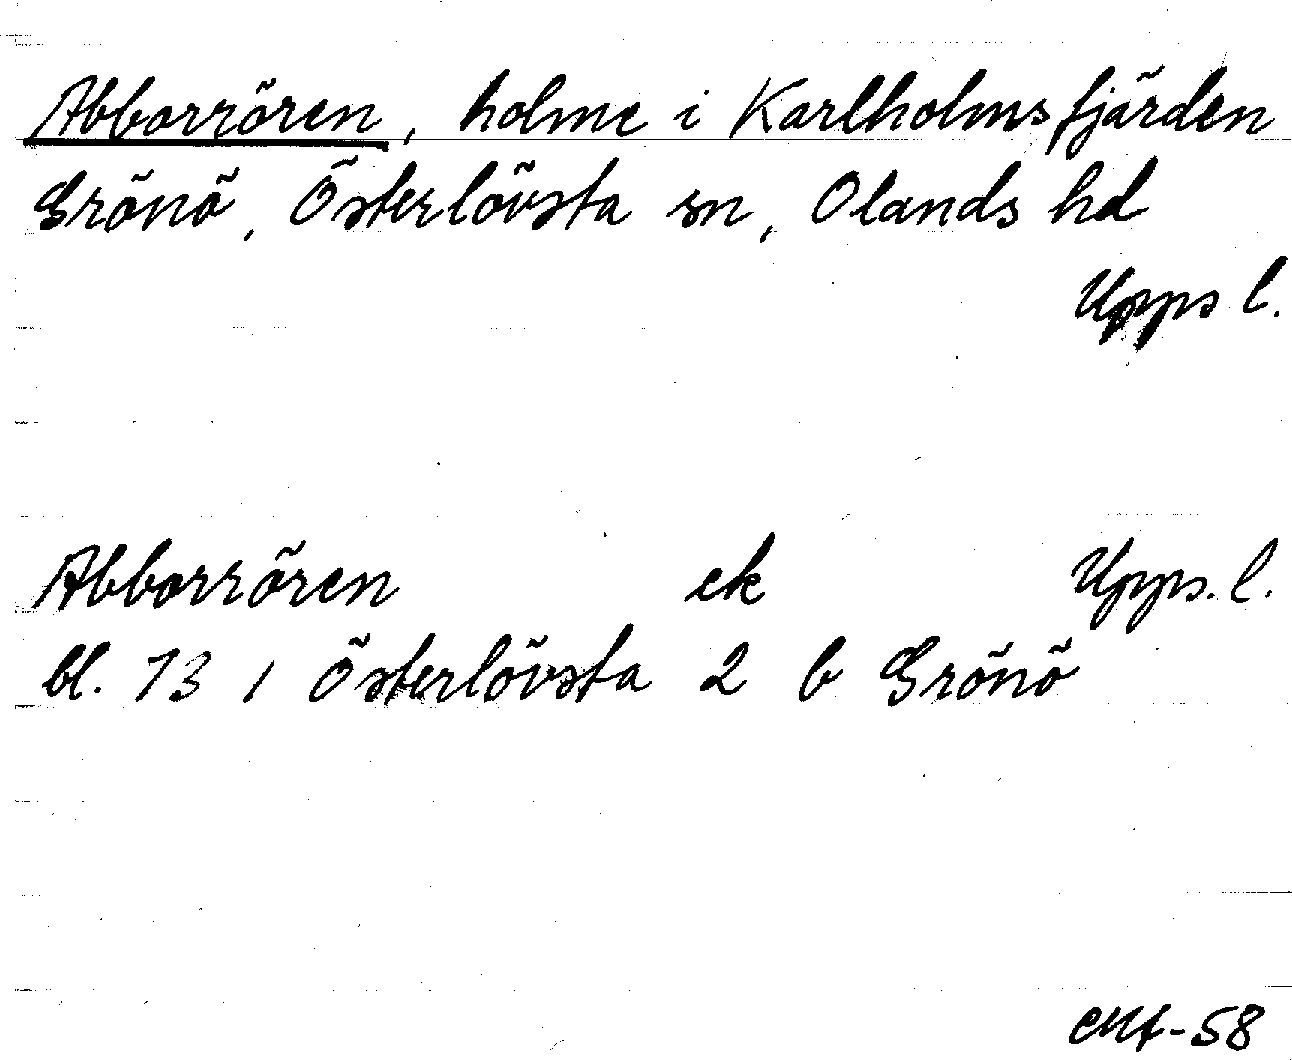 Abborrören, holme i Karlholmsfjärden
Grönö, Österlövsta sn, Olands hd
Upps l.
Abborrören ek Upps. l.
bl. 13 i Österlövsta 2 b Grönö
-58